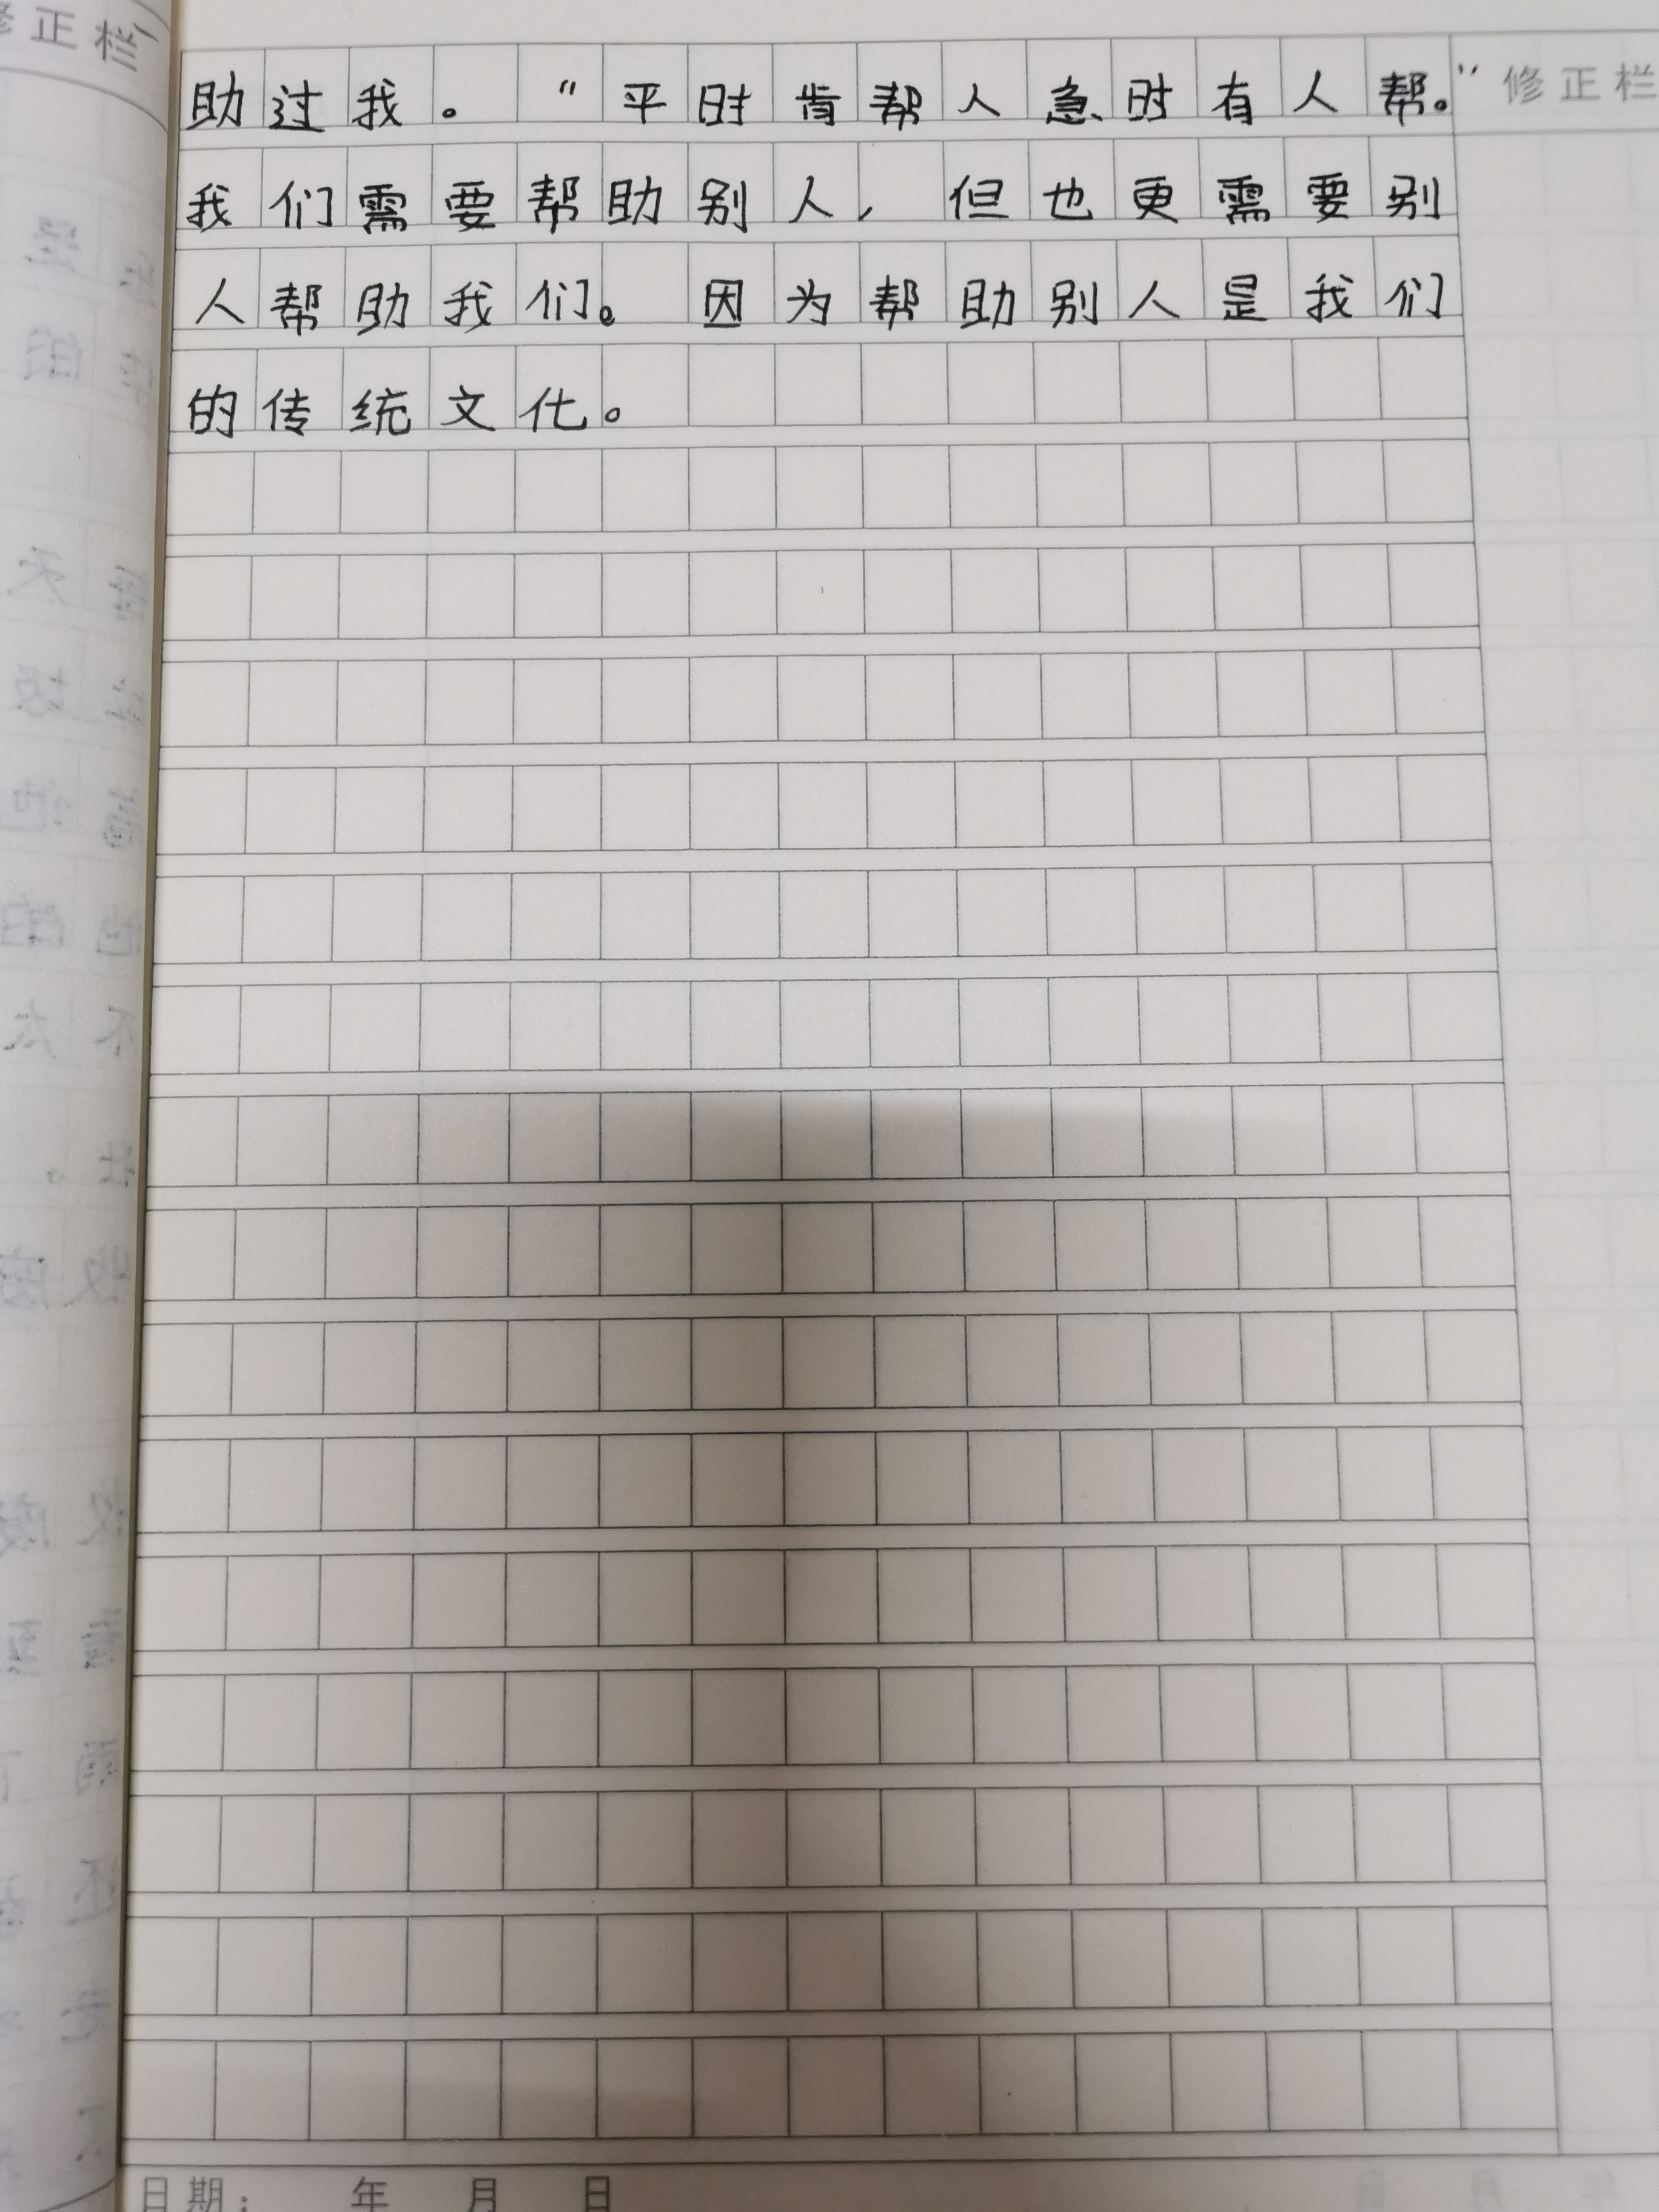 修正栏
助过我。“平时肯帮人急时有人帮。”修正栏
我们需要帮助别人,但也更需要别
人帮助我们。因为帮助别人是我们
的传统文化。
日期: 年 月 日